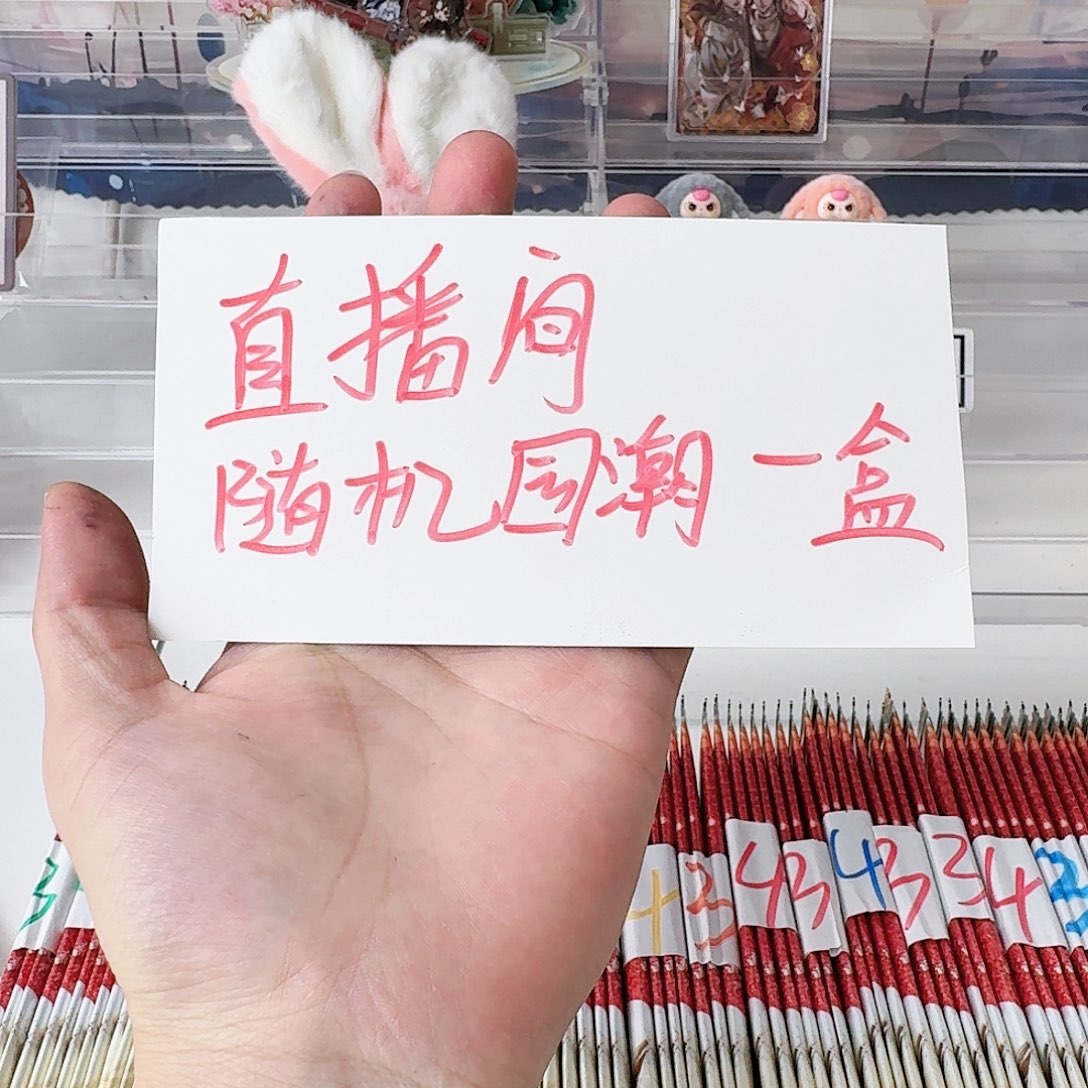 直播间
随机国潮一盒
3
4
23
43
4
3
3
4
23